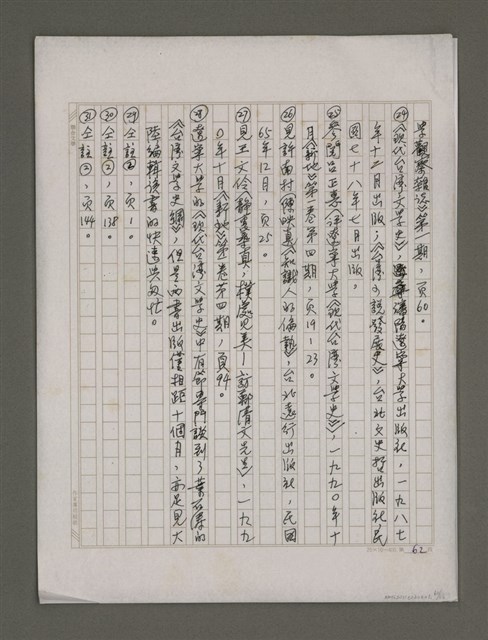 學觀察雜誌第一期，頁60。
㉔《現代台灣文學史》，瀋陽遼寧大學出版社，一九八七
年十二月出版；《台灣小說發展史》，台北文史哲出版社，民
國七十八年七月出版。
㉕參閱呂正惠《評遼寧大學《現代台灣文學史》，一九九〇年十
月《新地》第一卷第四期，頁19－23。
㉖見許南村（陳映真）《知識人的偏執》，台北遠行出版社，民國
65年12月，頁25。
㉗見王文伶《靜裏尋真，樸處見美－訪鄭清文先生》，一九九
〇年十月《新地》第一卷第四期，頁94。
㉘遼寧大學的《現代台灣文學史》中有節專門談到了葉石濤的
《台灣文學史綱》，但是兩書出版僅相距十個月，亦足見大
陸編輯該書的快速與匆忙。
㉙仝註②，頁1。
㉚仝註②，頁138。
㉛仝註②，頁144。
62